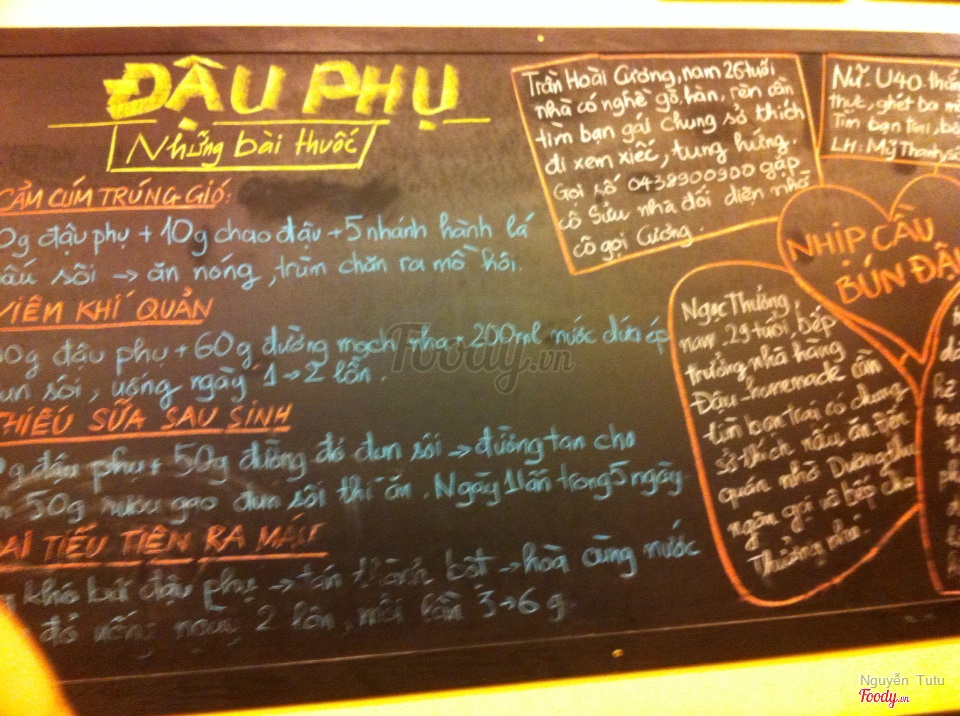 ĐẬU PHỤ
Những bài thuốc
CẢM CÚM TRÚNG GIÓ:
0g đậu phụ + 10g chao đậu + 5 nhánh hành lá
nấu sôi → ăn nóng, trùm chăn ra mồ hôi.
VIÊM KHÍ QUẢN
0g đậu phụ + 60g đường mạch nha + 200ml nước dứa ép
đun sôi, uống ngày 1→2 lần.
THIẾU SỮA SAU SINH
g đậu phụ + 50g đường đỏ đun sôi → đường tan cho
50g rượu gạo đun sôi thì ăn. Ngày 1 lần trong 5 ngày
ĐẠI TIỂU TIỆN RA MÁU
khô bã đậu phụ → tán thành bột → hòa cùng nước
đỏ uống ngày 2 lần, mỗi lần 3→6 g.
Trần Hoài Cương, nam 26 tuổi
nhà có nghề gỗ, hàn, rèn cần
tìm bạn gái chung sở thích
đi xem xiếc, tung hứng.
Gọi số 0438900900 gặp
cô Sửu nhà đối diện nhờ
cô gọi Cương.
Nữ. U40
thực, ghét ba
Tìm bạn trai,
LH: Mỹ Thanh
NHỊP CẦU
BÚN ĐẬU
Ngọc Thưởng,
nam. 29 tuổi, bếp
trưởng nhà hàng
Đậu-homemade cần
tìm bạn trai có chung
sở thích nấu ăn. Đến
quán nhờ Dương thu
ngân gọi vô bếp cho
Thưởng nhé.
Foody.vn
Nguyễn Tutu
Foody.vn